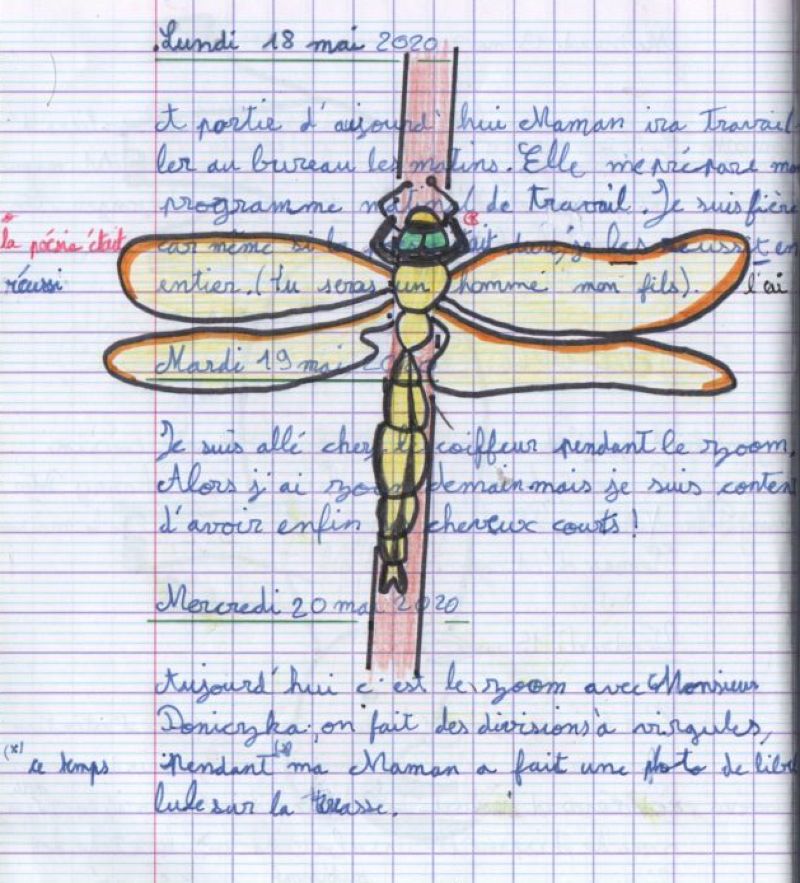 Lundi 18 mai 2020
A partie d'aujourd'hui Maman ira travail-
ler au bureau les matins. Elle me prépare mon
programme matinal de travail. Je suis fière
(*)
la poésie était car même si la était dure, je les réussit en
réussi entier. (tu seras un homme mon fils). l'ai
Mardi 19 mai 2020
Je suis allé chez le coiffeur pendant le zoom.
Alors j'ai zoom demain mais je suis content
d'avoir enfin cheveux courts !
Mercredi 20 mai 2020
Aujourd'hui c'est le zoom avec Monsieur
Doniczka, on fait des divisions à virgules,
(*) ce temps Pendant (*) ma Maman a fait une photo de libel
lule sur la terasse.